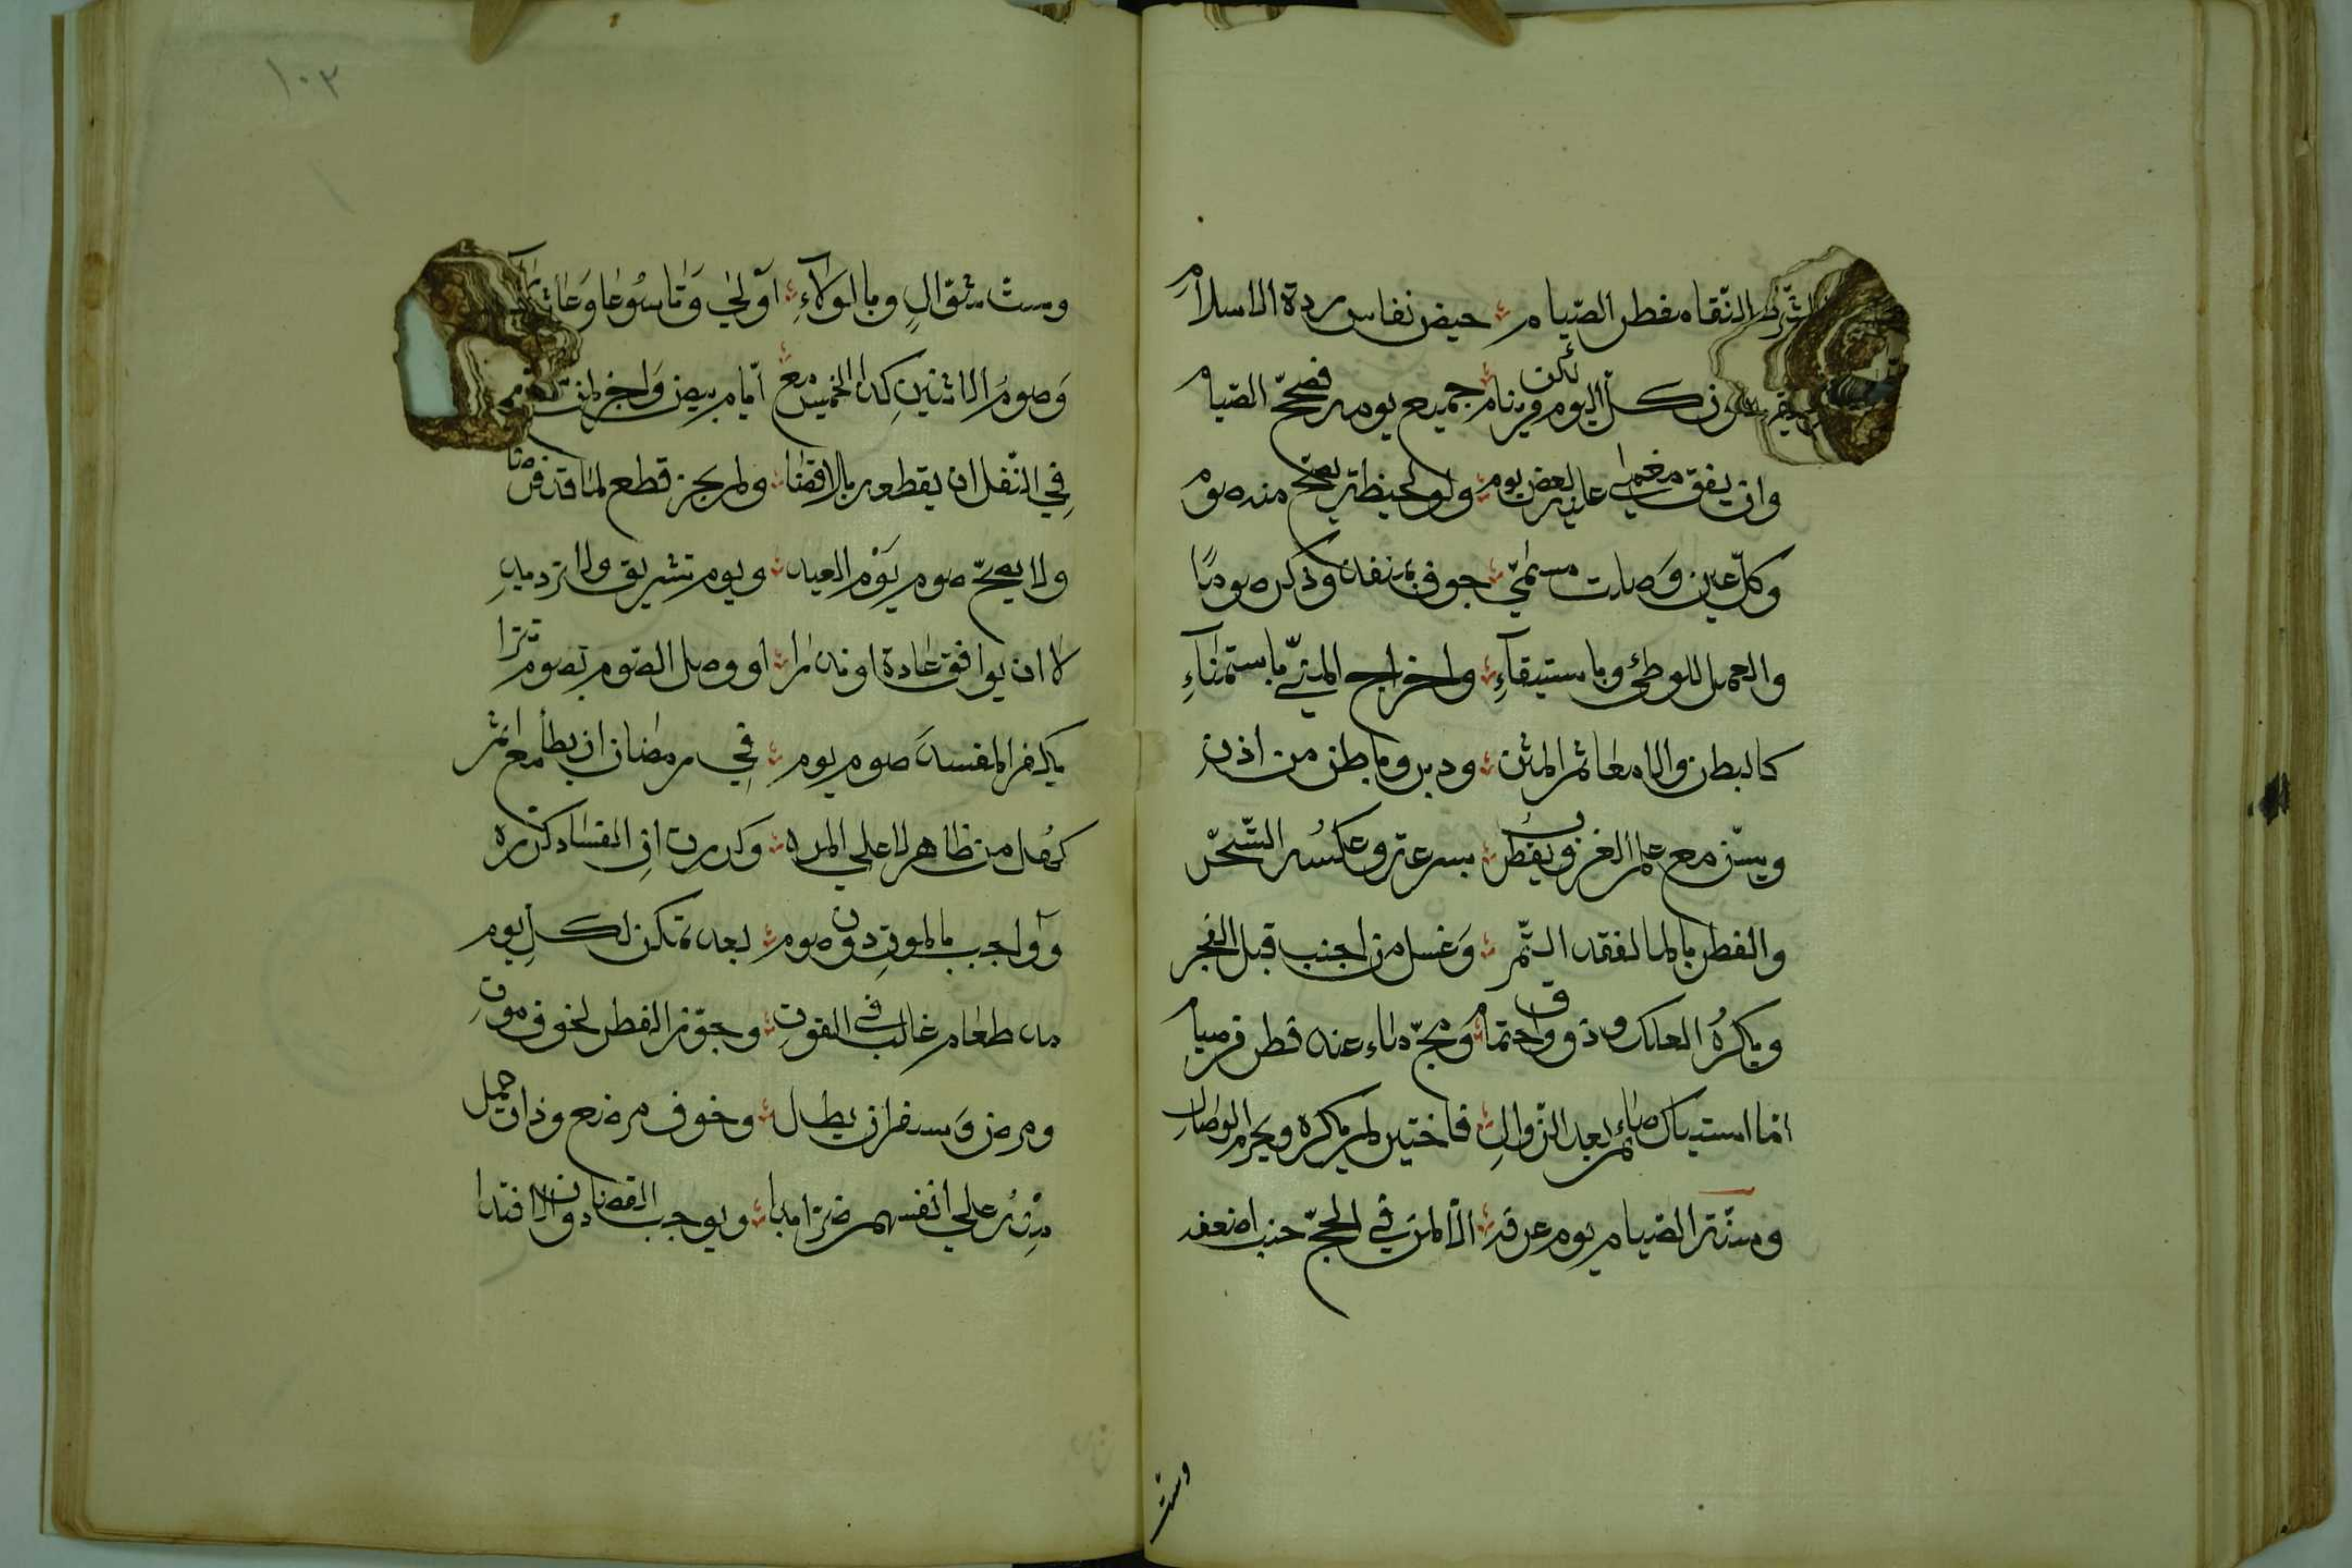 الشرط النقاه مفطر الصيام ؞ حيض نفاس ردة الاسلام
كل اليوم لكن من ينام جميع يومه فصحح الصيام
وان يفق مغمى عليه بعض يوم ؞ ولو لحيظة يصح منه صوم
وكل عين وصلت مسمى ؞ جوف بمنفد وذكر صوما
والعمد للوطئ وباستيقاءِ ؞ واخراج المنيّ باستمناءِ
كالبطن والامعا ثم المثن ؞ ودبر وباطن من اذن
ويسن مع علم الغروب يفطر ؞ بسرعة وعكسه التسحر
والفطر بالما لفقد التمر ؞ وغسل من اجنب قبل الفجر
ويكره العلك وذوق واحتجام ؞ ومج ماء عند فطر من صيام
اما استياك صائم بعد الزوال ؞ فاختير لم يكره ويحرم الوصال
وسنة الصيام يوم عرفه ؞ الا لمن في الحج حيث اضعفه
وست
١٠٢
وست شوّالٍ وبالولاءِ ؞ اولى وتاسوعا وعاشوراء
وصوم الاثنين كذا الخميس مع ؞ ايّام بيض واجز لمن شرع
في النّفل ان يقطعه بلا قضا ؞ ولم يجز قطع لما قد فرضا
ولا يصحّ صوم يوْم العيد ؞ ويوم تشريق ولا ترديد
لا ان يوافق عادة او نذرا ؞ او وصل الصوم بصوم مرّا
يكفر المفسد صوم يوم ؞ في رمضان ان يطأ مع اثم
كمُثل من ظاهر لا على المره ؞ وكررت ان الفساد كرره
وواجب بالموت دون صوم ؞ بعد تمكن لكل يوم
مد طعام غالب في القوت ؞ وجوّز الفطر لخوف موت
ومرض وسفر ان يطل ؞ وخوف مرضع وذات حمل
منه على انفسهم ضرّا بدا ؞ ويوجب القضا دون الافتدا